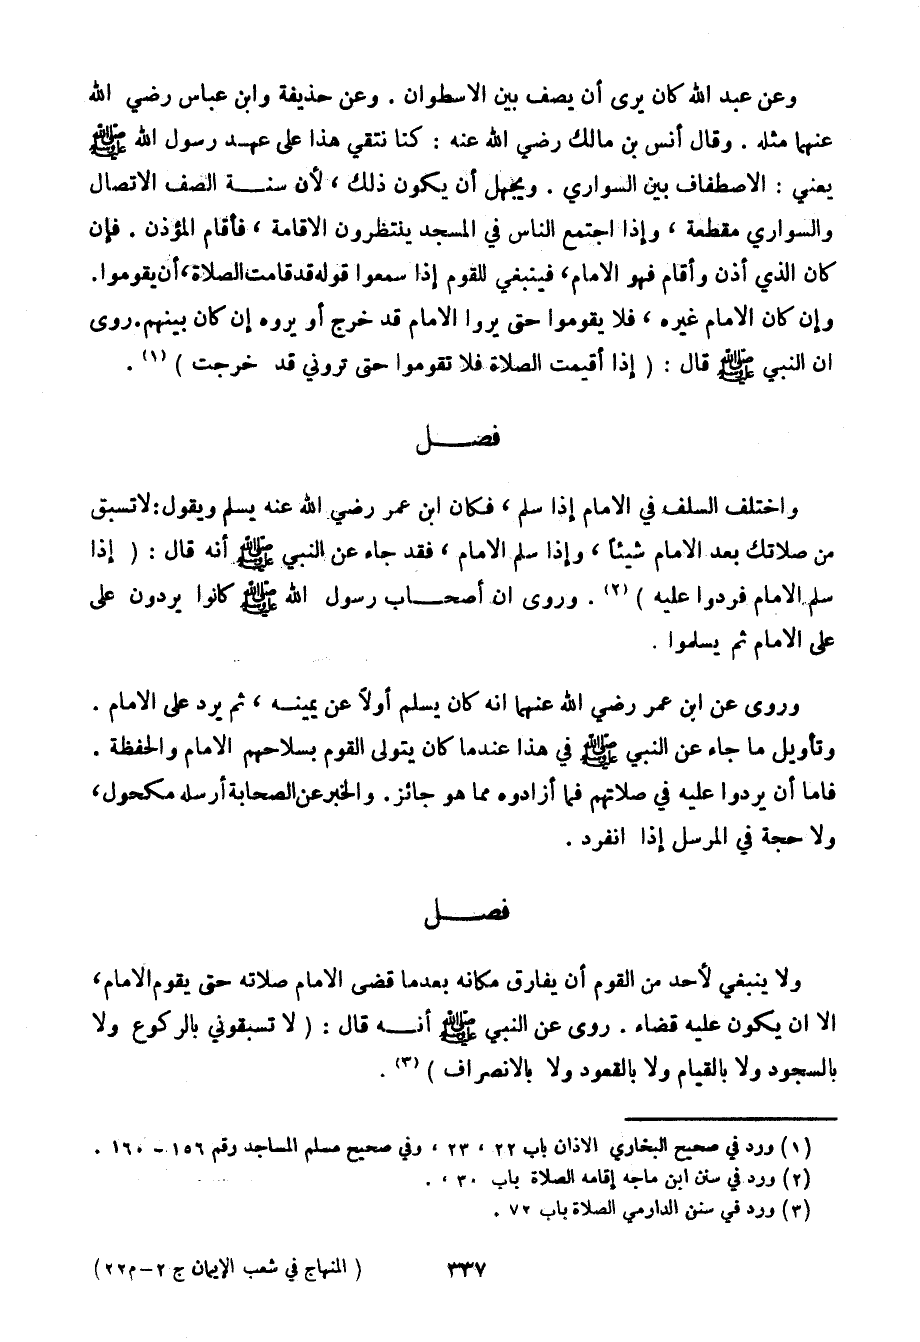 وعن عبد الله كان يرى أن يصف بين الاسطوان . وعن حذيفة وابن عباس رضي الله
عنهما مثله . وقال أنس بن مالك رضي الله عنه : كنا نتقي هذا على عهد رسول الله ﷺ
يعني : الاصطفاف بين السواري . ويجهل أن يكون ذلك ، لأن سنة الصف الاتصال
والسواري مقطعة ، وإذا اجتمع الناس في المسجد ينتظرون الاقامة ، فأقام المؤذن . فإن
كان الذي أذن وأقام فهو الامام، فينبغي للقوم إذا سمعوا قوله قد قامت الصلاة، أن يقوموا.
وإن كان الامام غيره ، فلا يقوموا حتى يروا الامام قد خرج أو يروه إن كان بينهم. روى
ان النبي ﷺ قال : ( إذا أقيمت الصلاة فلا تقوموا حتى تروني قد خرجت ) (١) .
فصل
واختلف السلف في الامام إذا سلم ، فكان ابن عمر رضي الله عنه يسلم ويقول: لاتسبق
من صلاتك بعد الامام شيئاً ، وإذا سلم الامام ، فقد جاء عن النبي ﷺ أنه قال : ( إذا
سلم الامام فردوا عليه ) (٢) . وروى ان أصحاب رسول الله ﷺ كانوا يردون على
على الامام ثم يسلموا .
وروى عن ابن عمر رضي الله عنهما انه كان يسلم أولاً عن يمينه ، ثم يرد على الامام .
وتأويل ما جاء عن النبي ﷺ في هذا عندما كان يتولى القوم بسلاحهم الامام والحفظة .
فاما أن يردوا عليه في صلاتهم فما أزادوه مما هو جائز. والخبر عن الصحابة أرسله مكحول،
ولا حجة في المرسل إذا انفرد .
فصل
ولا ينبغي لأحد من القوم أن يفارق مكانه بعدما قضى الامام صلاته حتى يقوم الامام،
الا ان يكون عليه قضاء . روى عن النبي ﷺ أنه قال : ( لا تسبقوني بالركوع ولا
بالسجود ولا بالقيام ولا بالقعود ولا بالانصراف ) (٣) .
(١) ورد في صحيح البخاري الاذان باب ٢٢ ، ٢٣ ، وفي صحيح مسلم المساجد رقم ١٥٦ - ١٦٠ .
(٢) ورد في سنن ابن ماجه إقامه الصلاة باب ٣٠ ، .
(٣) ورد في سنن الدارمي الصلاة باب ٧٢ .
٣٣٧
( المنهاج في شعب الإيمان ج ٢ - م ٢٢ )